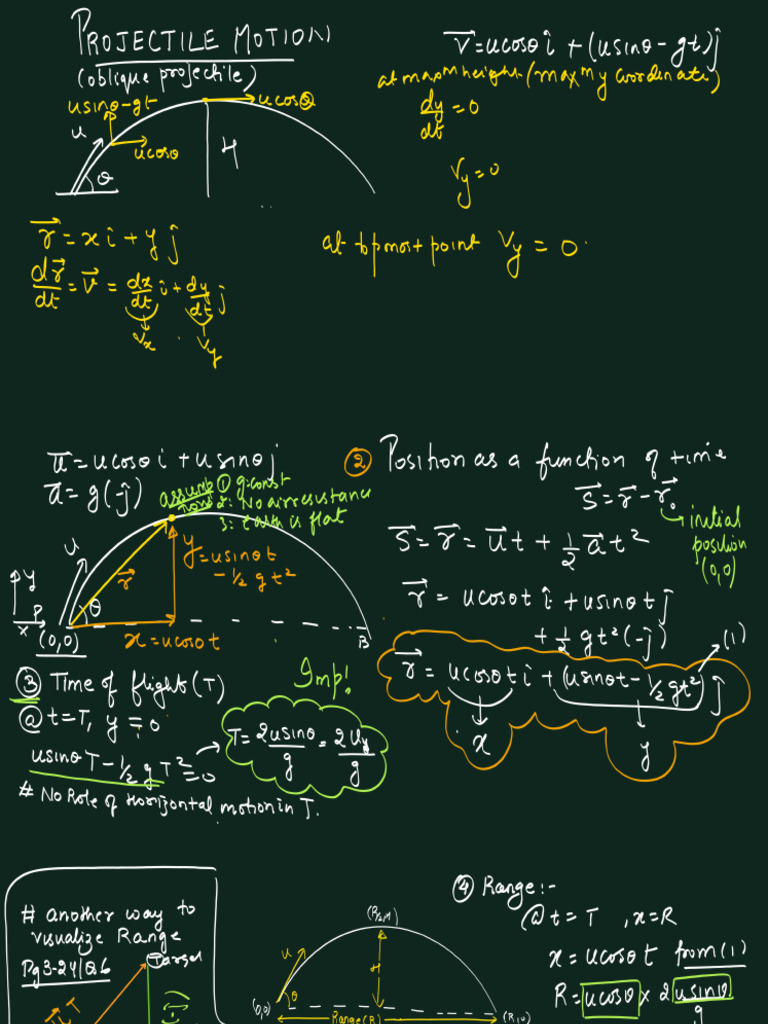 PROJECTILE MOTION
(oblique projectile)
v = ucosθ i + (usinθ - gt) j
at maxm height (maxm y coordinate)
dy/dt = 0
vy = 0
usinθ-gt
ucosθ
u
ucosθ
θ
H
r = x i + y j
dr/dt = v = dx/dt i + dy/dt j
vx
vy
at topmost point Vy = 0
u = ucosθ i + usinθ j
a = g(j)
assumptions 1: g: const
2: No air resistance
3: earth is flat
u
y = usinθ t
- 1/2 g t²
r
θ
y
x
P
(0,0)
x = ucosθ t
B
② Position as a function of time
S = r - r₀
initial
position
(0,0)
S = r = u t + 1/2 a t²
r = ucosθ t i + usinθ t j
+ 1/2 g t² (-j)
r = ucosθ t i + (usinθ t - 1/2 g t²) j
(1)
x
y
③ Time of flight (T)
@ t=T, y = 0
Imp!
usinθ T - 1/2 g T² = 0
T = 2usinθ/g = 2Uy/g
# No Role of Horizontal motion in T.
# another way to
visualize Range
Pg3-24/Q6
Target
④ Range:-
@ t = T , x=R
x = ucosθ t from (1)
R = ucosθ x 2 usinθ
g
u
θ
H
(0,0)
Range(R)
(R,0)